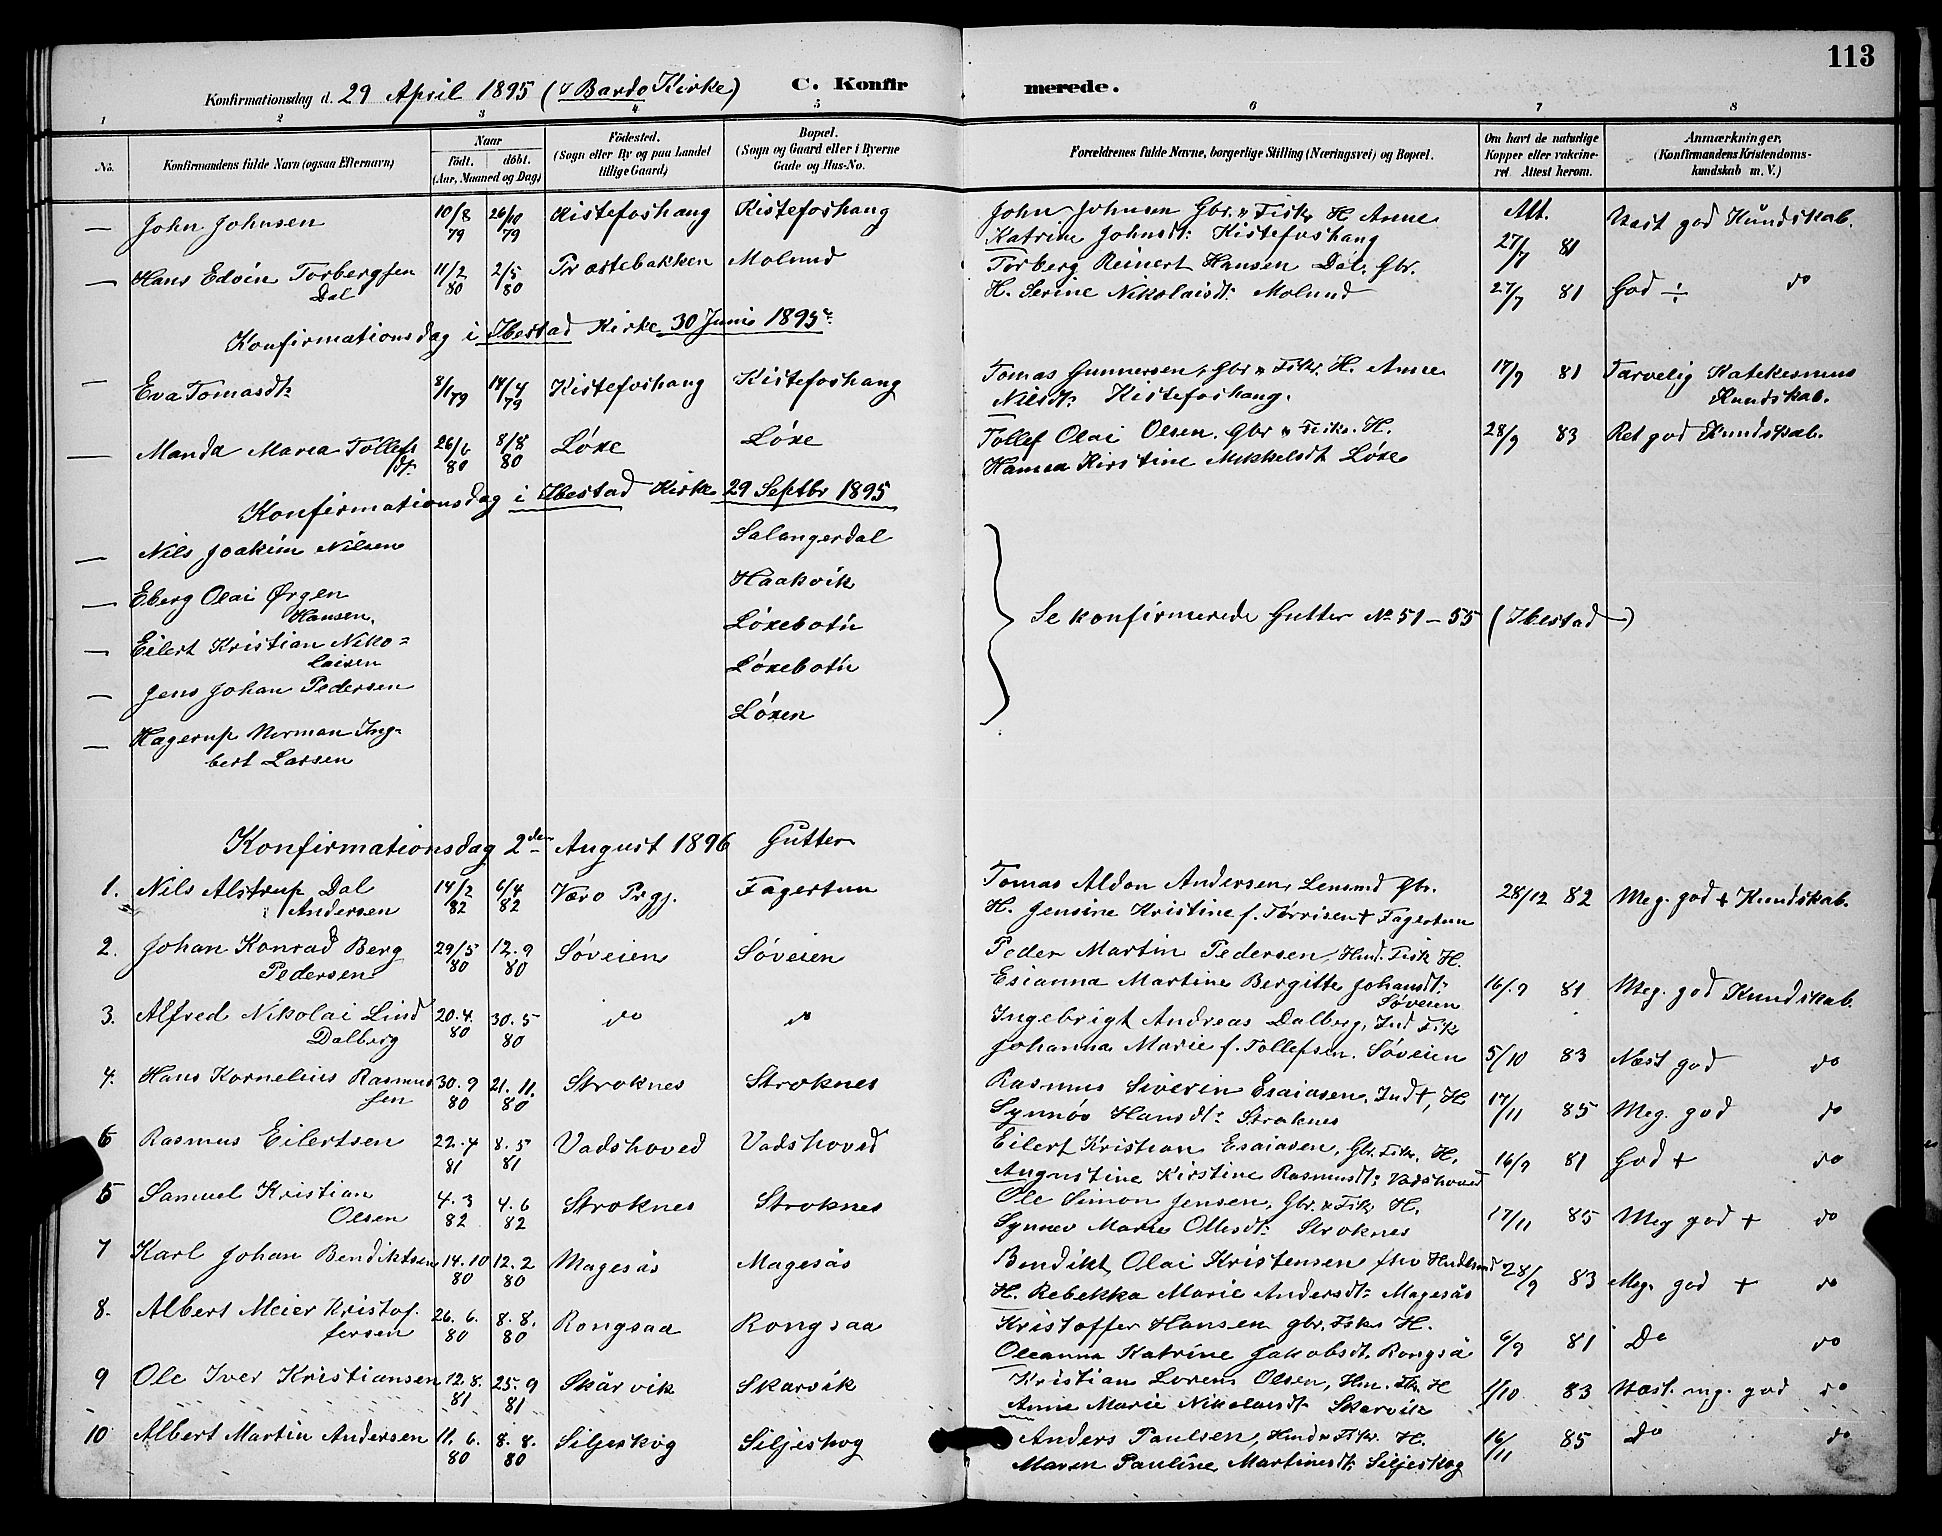 113
Konfirmationsdag d. 29 April 1895 (i Bardo Kirke) C. Konfirmerede.
1 2 3 4 5 6 7 8
No. Konfirmandens fulde Navn (ogsaa Efternavn) Naar födt. döbt. (Aar, Maaned og Dag) Födested. (Sogn eller By og paa Landet tillige Gaard) Bopæl. (Sogn og Gaard eller i Byerne Gade og Hus-No. Forældrenes fulde Navne, borgerlige Stilling (Næringsvei) og Bopæl. Om havt de naturlige Kopper eller vakcineret. Attest herom. Anmærkninger. (Konfirmandens Kristendomskundskab m. V.)
— John Johnsen 10/8 79 26/10 79 Kistefoshaug Kistefoshaug John Johnsen Gbr. & Fisk. H. Anne Att. Næst god Kundskab.
Katrine Johnsdt: Kistefoshaug 27/7 81
— Hans Edvin Torbergsen 11/2 80 2/5 80 Præstebakken Molund Torberg Reinert Hansen Dal. Gbr.
Dal H. Serine Nikolaisdt: Molund 27/7 81 God ÷ do
Konfirmationsdag i Ibestad Kirke 30 Juni 1895
— Eva Tomasdt: 8/1 79 14/4 79 Kistefoshaug Kistefoshaug Tomas Gunnersen, Gbr & Fisk. H. Anne 17/9 81 Tarvelig Katekesmus
Nilsdt: Kistefoshaug. Kundskab.
— Manda Marea Tollefs 26/6 80 8/8 80 Löxe Löxe Tollef Olai Olsen. Gbr & Fisk. H. 28/9 83 Ret god Kundskab.
dt. Hansea Kirstine Mikkelsdt Löxe
Konfirmationsdag i Ibestad Kirke 29 Septbr 1895
— Nils Joakim Nilsen Salangerdal
— Eberg Olai Ørgen Haakvik
Hansen. Se konfirmerede Gutter No 51–55 (Ibestad)
— Eilert Kristian Niko= Löxebotn
laisen
— Jens Johan Pedersen Löxebotn
— Hagerup Norman Ing- Löxen
bert Larsen
Konfirmationsdag 2den August 1896 Gutter
1. Nils Alstrup Dal 14/2 82 6/4 82 Værö Prgj. Fagertun Tomas Aldon Andersen, Lensmd Gbr. 28/12 82 Meg. god + Kundskab.
Andersen H. Jensine Kristine f. Törrisen + Fagertun
2. Johan Konrad Berg 29/5 80 12.9 80 Söveien Söveien Peder Martin Pedersen, Hmd. Fisk H.
Pedersen Esianna Martine Bergitte Johansdt: 16/9 81 Meg. god Kundskab.
Söveien
3. Alfred Nikolai Lind 20.4. 80 30.5 80 do do Ingebrigt Andreas Dalberg, Ind Fisk
Dalberg Johanna Marie f. Tollefsen. Söveien 5/10 83 Næst god do
4. Hans Kornelius Rasmus 30.9 80 21.11. 80 Stroknes Stroknes Rasmus Siverin Esaiasen. Ind +, H. 17/11 85 Meg. god do
sen Synnöv Hansdt: Stroknes
6 Rasmus Eilertsen 22.4 81 8.5 81 Vadshoved Vadshoved Eilert Kristian Esaiasen, Gbr. Fisk. H. 16/9 81 God + do
Augustine Kirstine Rasmusdt: Vadshoved
5 Samuel Kristian 4.3 82 4.6 82 Stroknes Stroknes Ole Simon Jensen, Gbr. & Fisk H. 17/11 85 Meg god + do
Olsen Synnev Marie Olesdt: Stroknes
7 Karl Johan Bendiktsen 14.10 80 12.2 80 Magesås Magesås Bendikt Olai Kristensen fhv Handlsmd 28/9 83 Meg. god + do
H. Rebekka Marie Andersdt: Magesås
8. Albert Meier Kristof- 26.6. 80 8.8. 80 Rongsaa Rongsaa Kristoffer Hansen gbr. Fisk H. 6/9 81 Do do
fersen Oleanna Katrine Jakobsdt. Rongså
9 Ole Iver Kristiansen 12.8. 81 25.9 81 Skårvik Skarvik Kristian Lorens Olsen, Hm. Fk. H 1/10 83 Næst. mg. god do
Anne Marie Nikolaisdt Skarvik
10 Albert Martin Andersen 11.6. 80 8.8. 80 Siljeskog Siljeskog Anders Paulsen, Hmd & Fisk. H. 16/11 85 Do do
Maren Pauline Martinesdt: Siljeskog